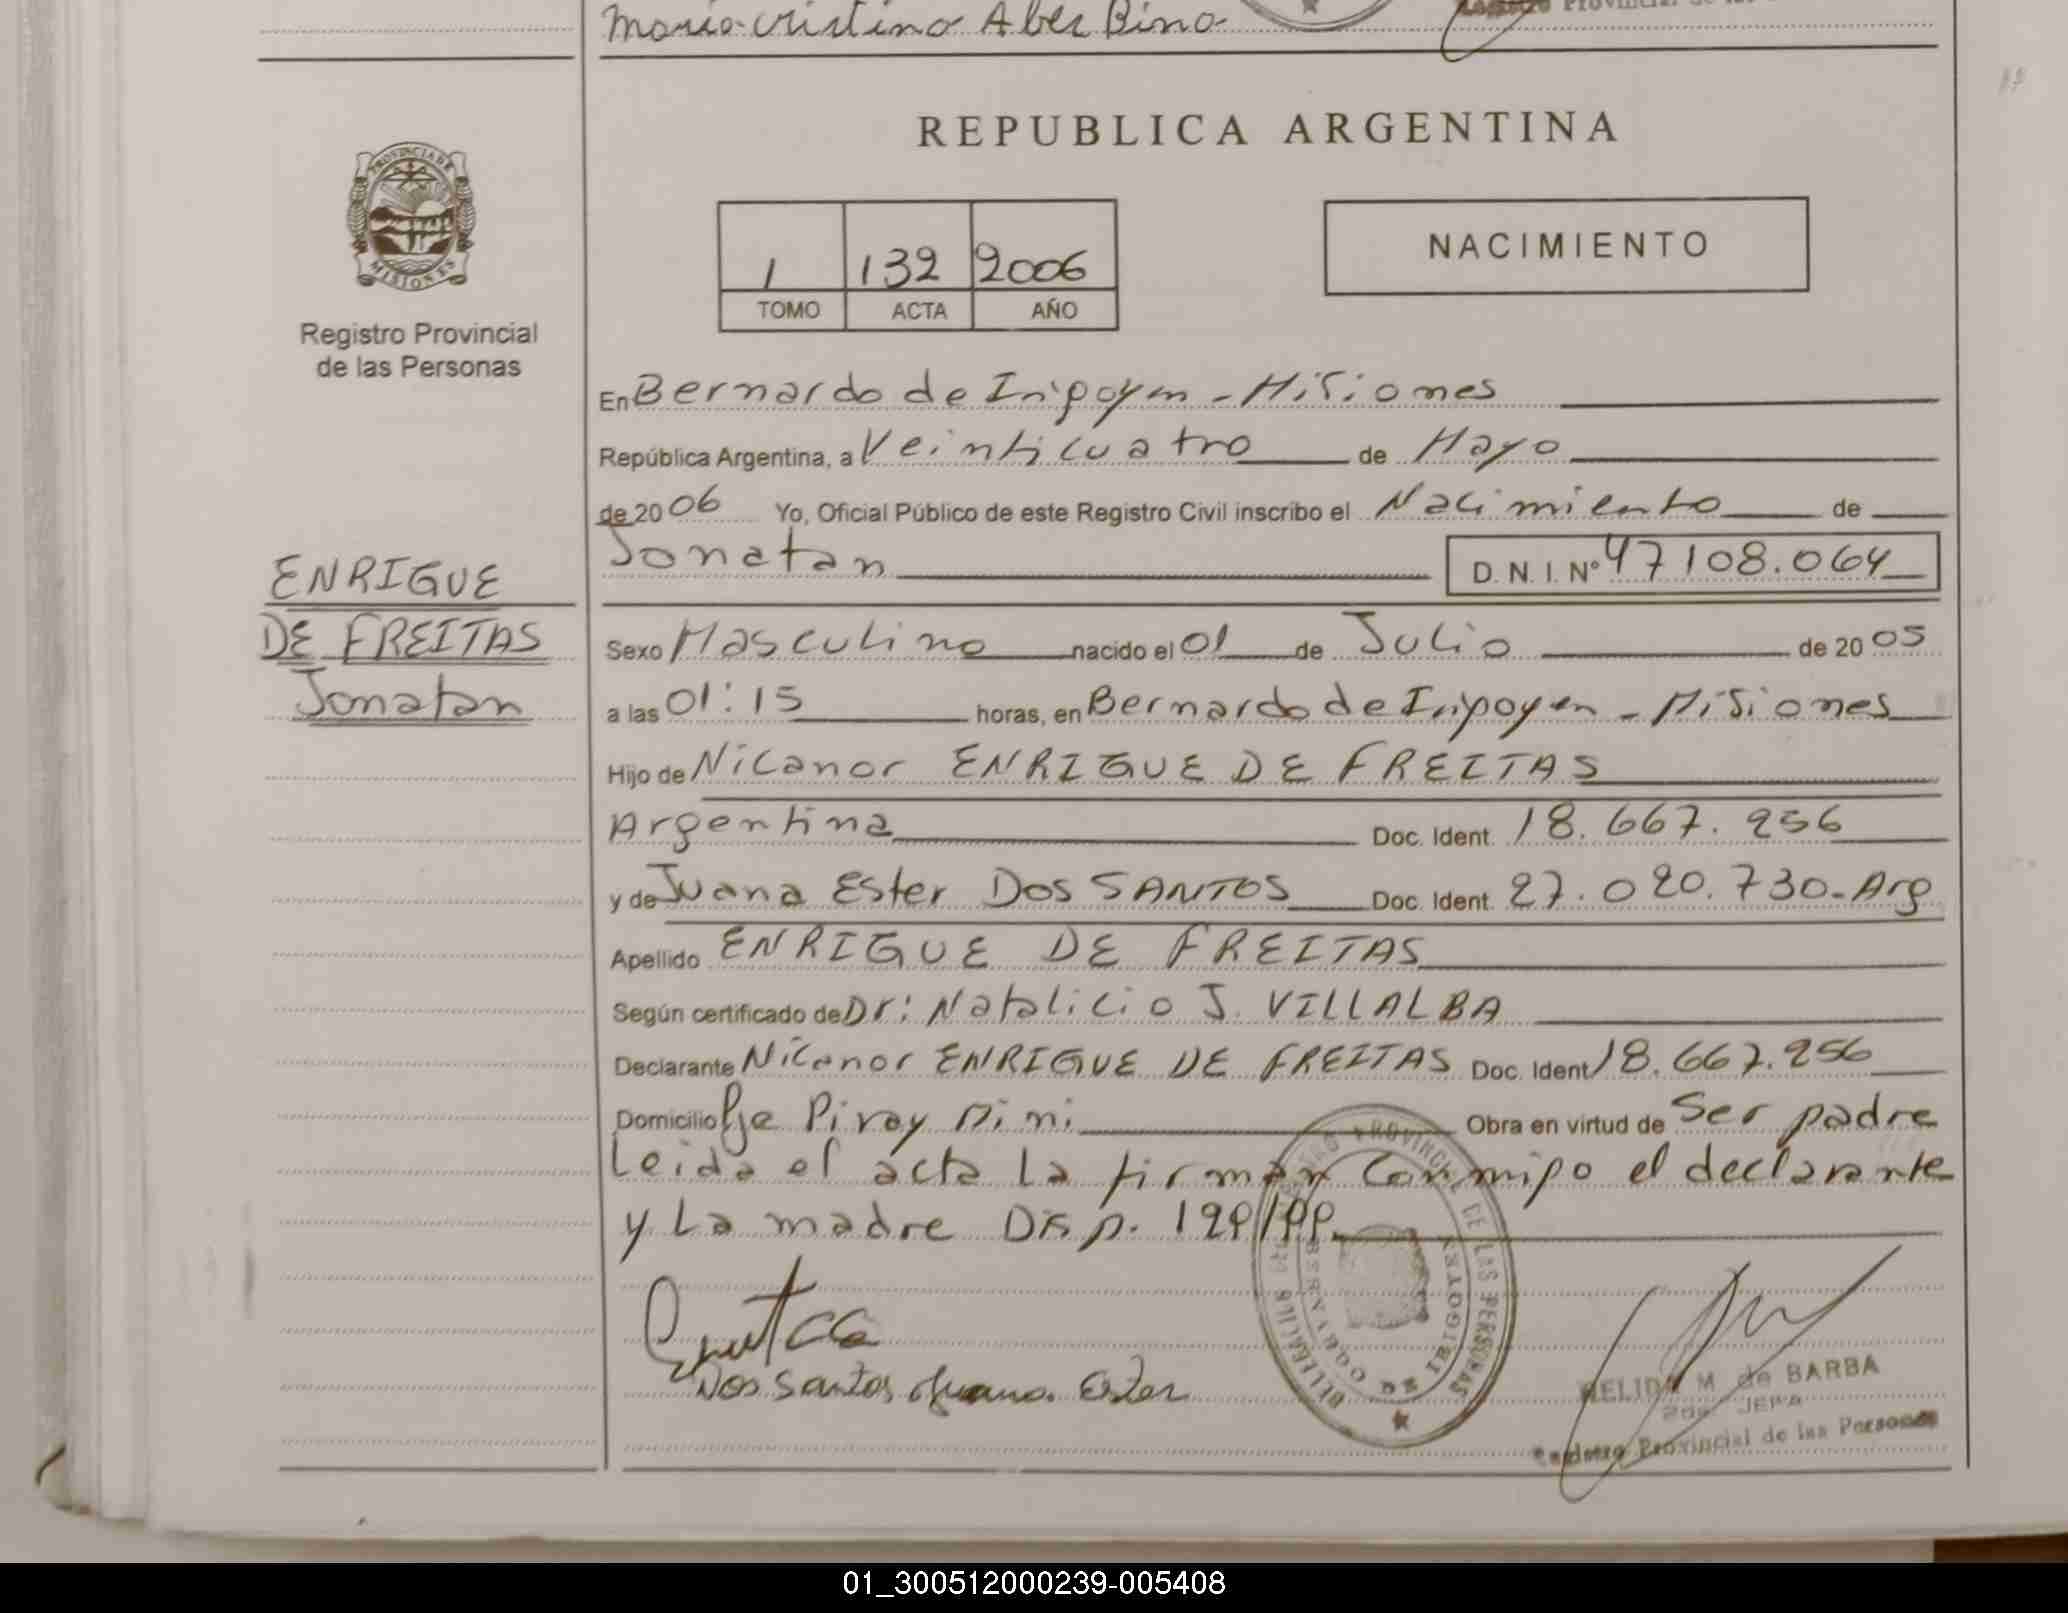 Maria Cristina
REPUBLICA ARGENTINA
PROVINCIA DE
MISIONES
Registro Provincial
de las Personas
1 132 2006
TOMO ACTA AÑO
NACIMIENTO
En Bernardo de Irigoyen - Misiones
República Argentina, a Veinticuatro de Mayo
de 2006 Yo, Oficial Público de este Registro Civil inscribo el Nacimiento de
Jonatan D. N. I. Nº 47108.064
ENRIGUE
DE FREITAS
Jonatan
Sexo Masculino nacido el 01 de Julio de 2005
a las 01:15 horas, en Bernardo de Irigoyen - Misiones
Hijo de Nicanor ENRIGUE DE FREITAS
Argentina Doc. Ident. 18.667.256
y de Juana Ester DOS SANTOS Doc. Ident. 27.020.730-Arg
Apellido ENRIGUE DE FREITAS
Según certificado de Dr: Natalicio J. VILLALBA
Declarante Nicanor ENRIGUE DE FREITAS Doc. Ident 18.667.256
Domicilio Pje Piray Mini Obra en virtud de Ser padre
Leida el acta la firman Conmigo el declarante
y La madre
Dos Santos Juana Ester
PROVINCIAL DE LAS PERSONAS
M de BARBA
2da. JEFA
Registro Provincial de las Personas
01_300512000239-005408